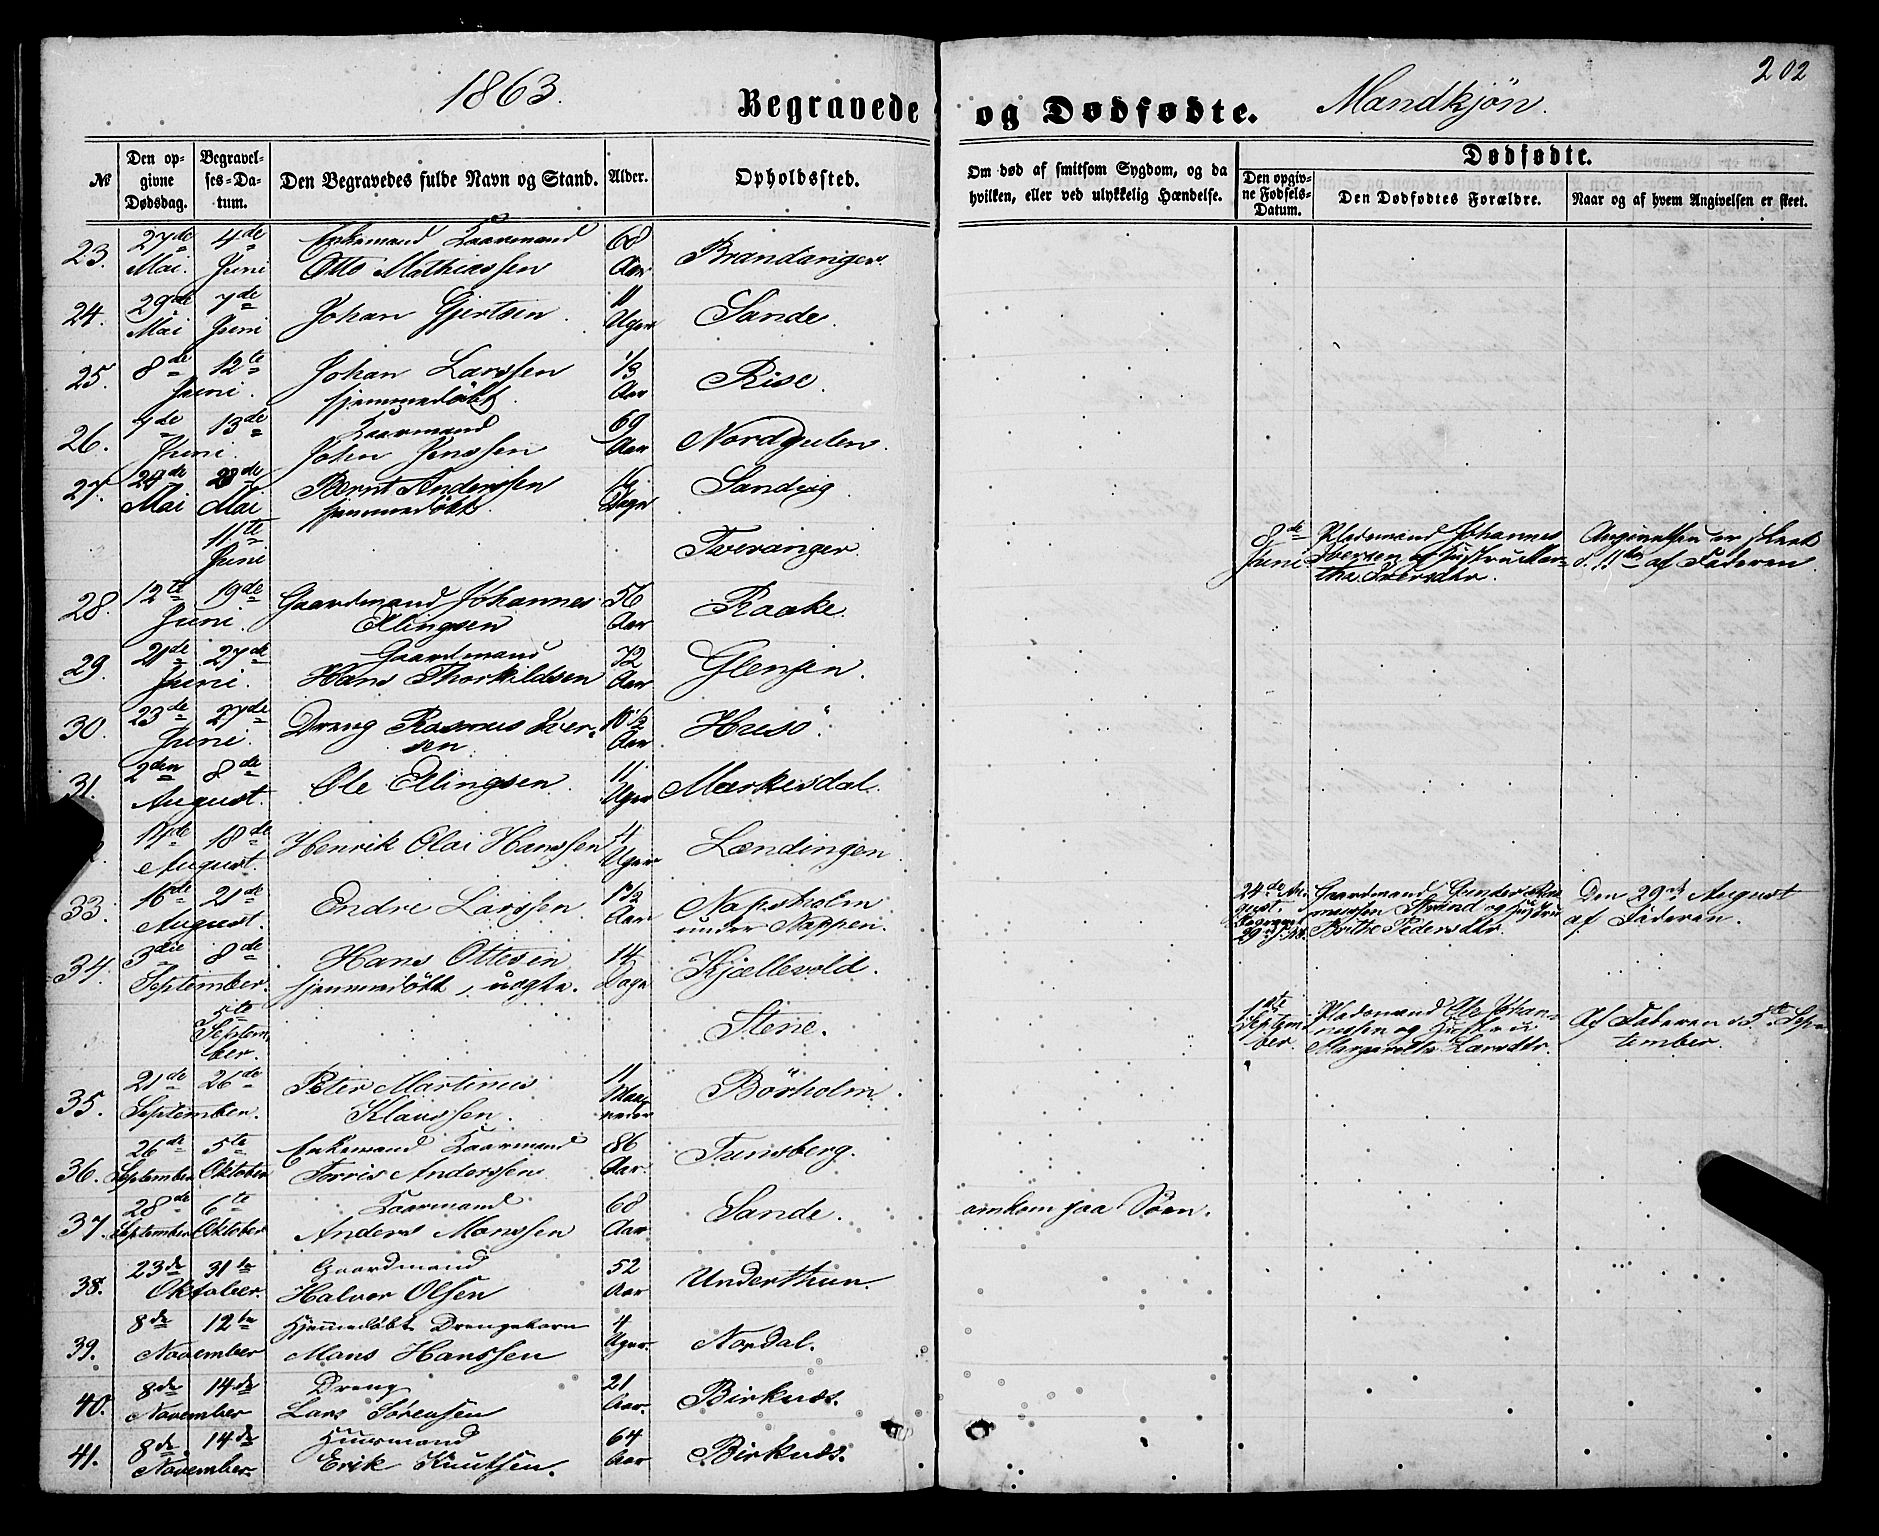 1863.
Begravede og Dødfødte.
Mandkjön.
202
№
Den opgivne Dødsdag.
Begravelses-Datum.
Den Begravedes fulde Navn og Stand.
Alder.
Opholdssted.
Om død af smitsom Sygdom, og da hvilken, eller ved ulykkelig Hændelse.
Dødfødte.
Den opgivne Fødsels-Datum.
Den Dødfødtes Forældre.
Naar og af hvem Angivelsen er skeet.
23. 27de Mai. 4de Juni Enkemand Kaarmand Otto Mathiassen 68 Aar Brandanger.
24. 29de Mai 7de Juni Johan Gjertsen 11 Uger Sande.
25. 8de 12te Juni. Johan Larssen hjemmedöbt. 1/3 Aar Rise.
26. 7de 13de Juni. Kaarmand John Jenssen 69 Aar Nordgulen.
27. 24de Mai 28de Mai Bernt Anderssen hjemmedöbt. Dage Sandvig
11te Juni Tveranger. 8de Juni Pladsmand Johannes Iversen og Hustru Marthe Iversdtr. Angivelsen er skeet d. 11te af Faderen
28. 12te 19de Juni. Gaardmand Johannes Ellingsen 56 Aar Raake.
29. 21de 27de Juni. Gaardmand Hans Thorkildsen 72 Aar Glenjen.
30. 23de 27de Juni. Dreng Rasmus Iversen 10 1/2 Aar Hisö.
31. 2den 8de August. Ole Ellingsen 11 Uger Markesdal.
14de 18de August. Henrik Olai Hanssen Uger Lændingen
33. 16de 21de August. Endre Larssen 1 1/2 Aar Napsholm under Nappen.
24de August. 29de Gaardmand Strand og Hustru Brithe Pedersdtr. Den 29de August af Faderen.
34. 3die 8de September. Hans Ottesen hjemmedöbt, uægte. 14 Dage Kjællevold.
5te September. Stene. 1ste September Pladsmand Ole Johannessen og Hustru Margarethe Larsdtr. Af Faderen d. 5te September.
35. 21de 26de September. Peter Martinus Klaussen. 11 Maaneder Börholm.
36. 26de September 5te Oktober Enkemand Kaarmand Torris Anderssen 86 Aar. Tunsberg.
37. 28de September 6te Oktober Kaarmand Anders Monssen 68 Aar. Sande. omkom paa Söen.
38. 23de 31te Oktober. Gaardmand Halvor Olsen 52 Aar Underthun.
39. 8de 12te November Hjemmedöbt Drengebarn Mons Hanssen 4 Uger. Nordal.
40. 8de 14de November Dreng Lars Sörensen 21 Aar. Birknæs.
41. 8de 14de November Huusmand Erik Knutsen. 64 Aar Birknæs.